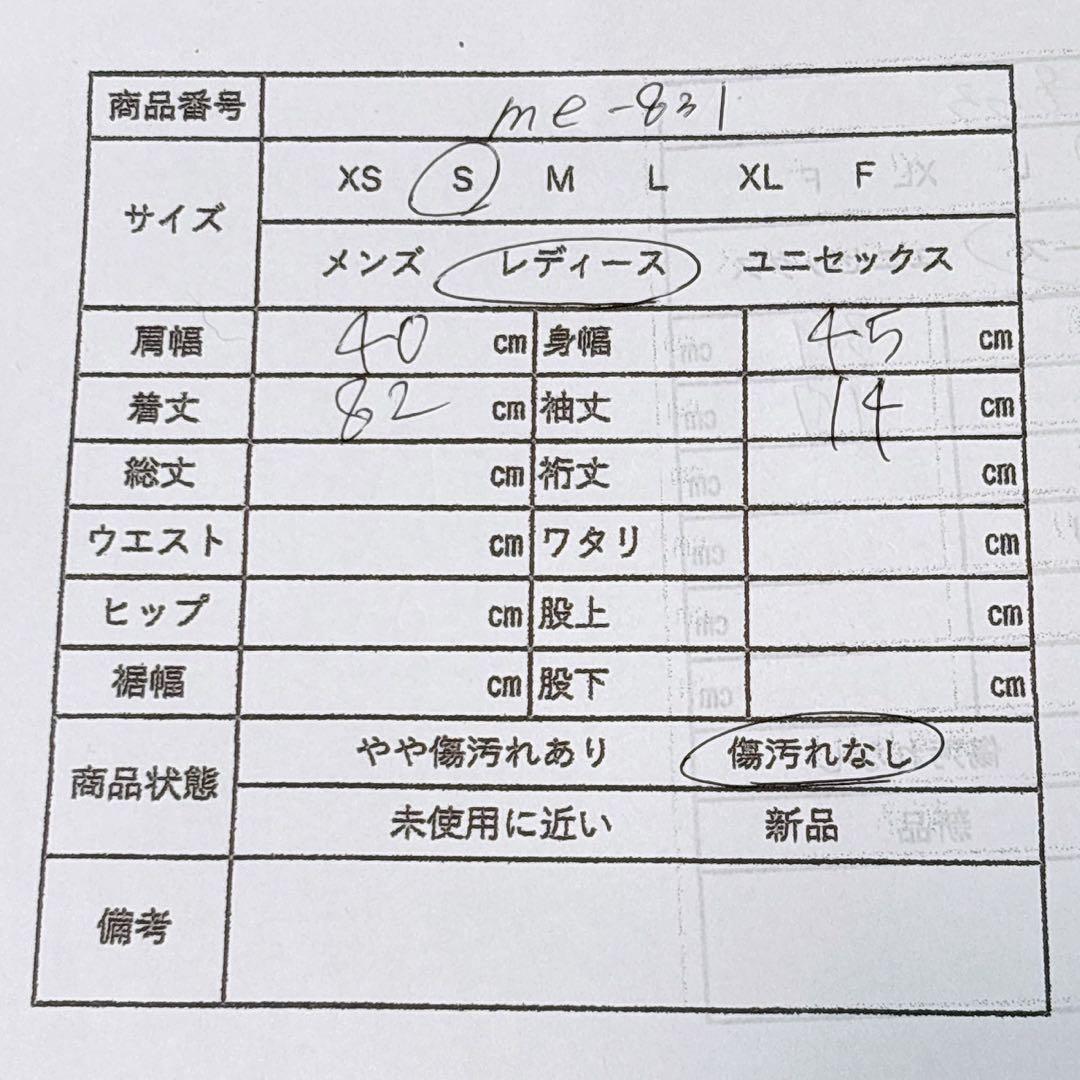 商品番号 me-831
サイズ XS S M L XL F
メンズ レディース ユニセックス
肩幅 40 cm 身幅 45 cm
着丈 82 cm 袖丈 14 cm
総丈 cm 裄丈 cm
ウエスト cm ワタリ cm
ヒップ cm 股上 cm
裾幅 cm 股下 cm
商品状態 やや傷汚れあり 傷汚れなし
未使用に近い 新品
備考